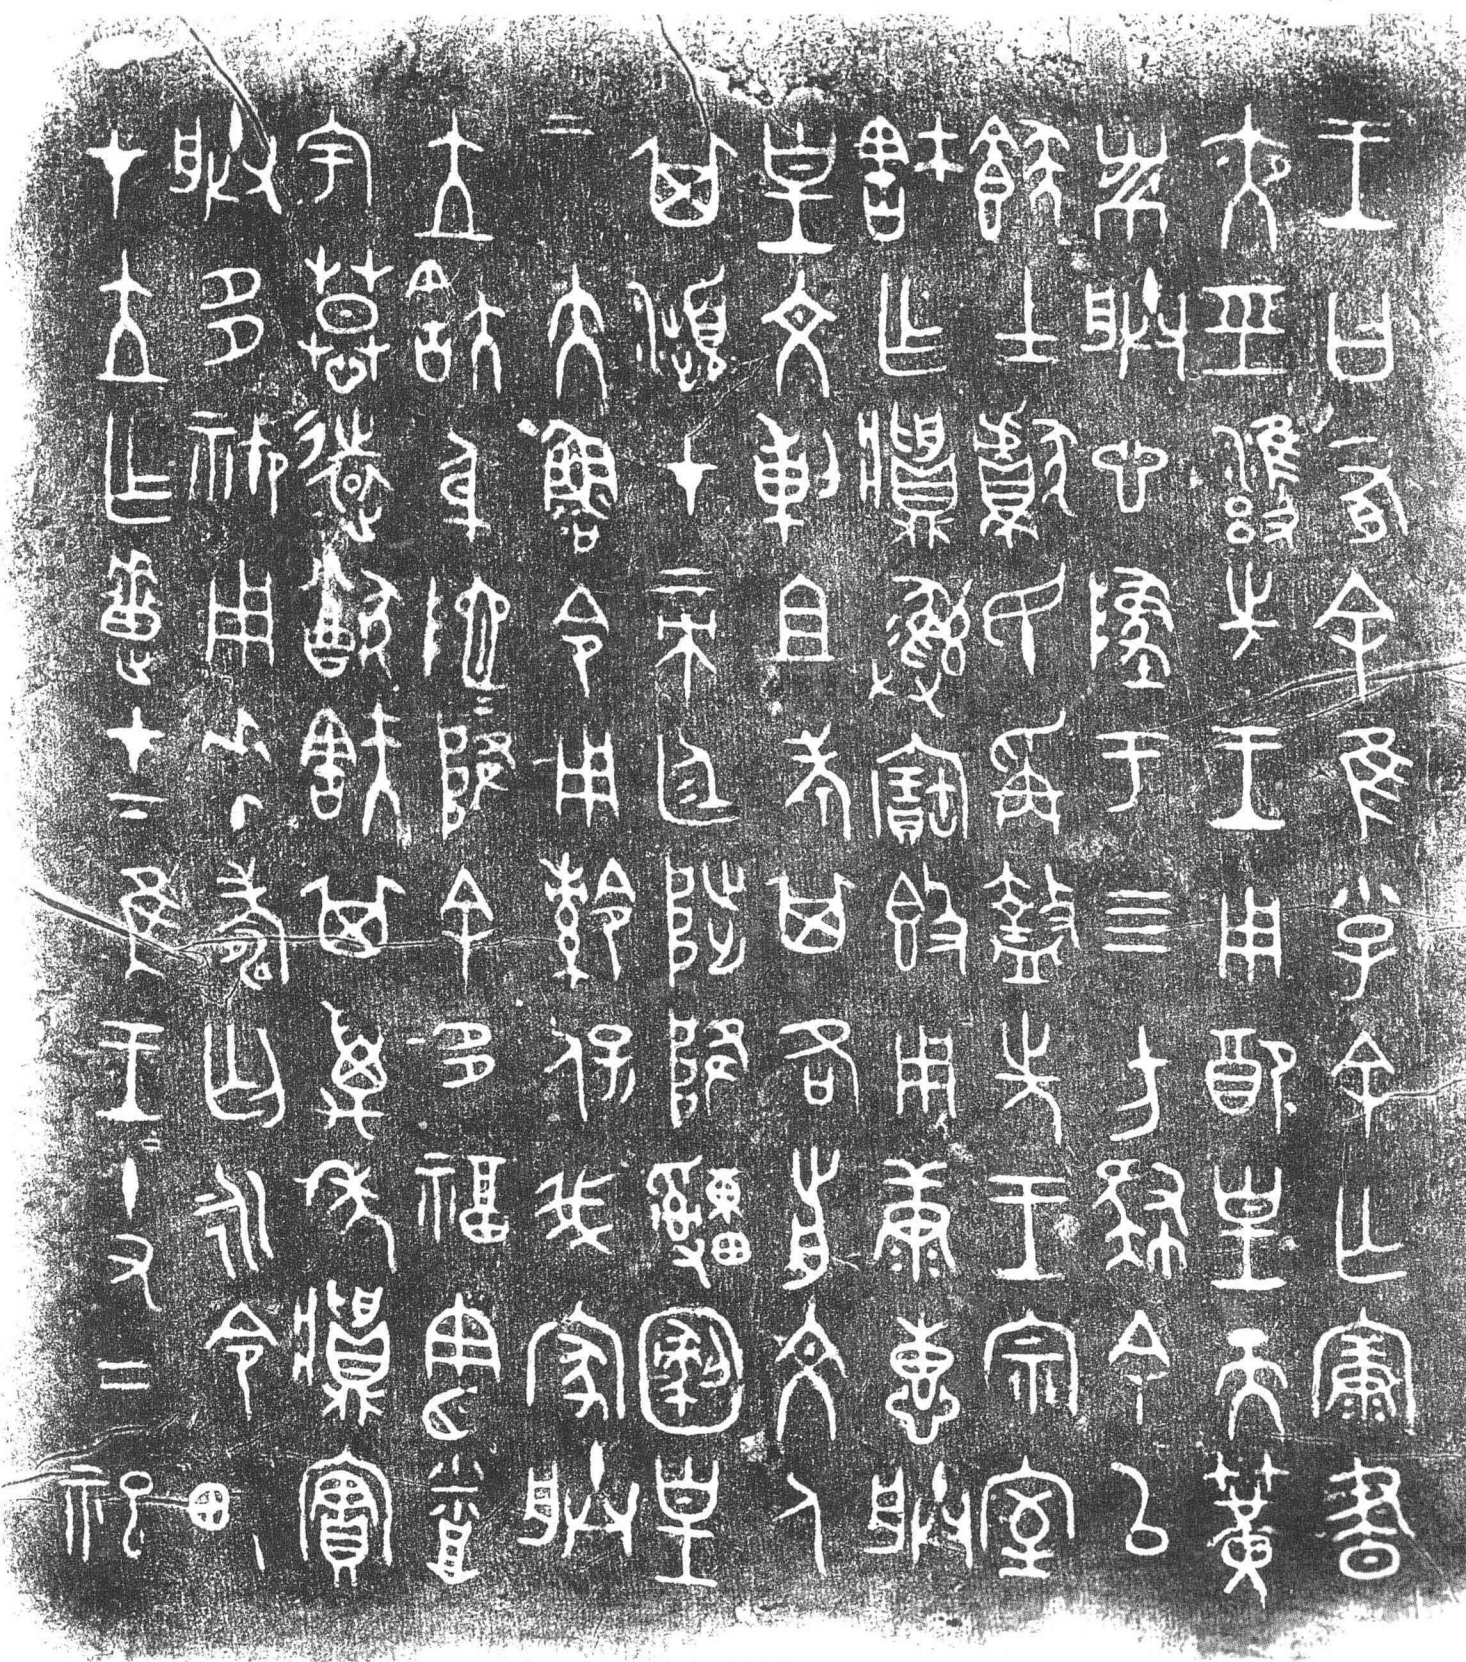 王曰有余隹小子余亡康晝
夜巠雍先王用配皇天黃
黹朕心墜于四方肆余以
士獻民爯盩先王宗室
㝬乍䵼彝寶𣪘用康惠朕
皇文剌且考其各前文人
其瀕才帝廷陟降皇
帝大魯令用保我家朕
立㝬身阤=降余多福憲烝
宇慕遠猷㝬其萬年䵼實
朕多御用壽匄永令畯
才立乍疐才下隹王十又二祀